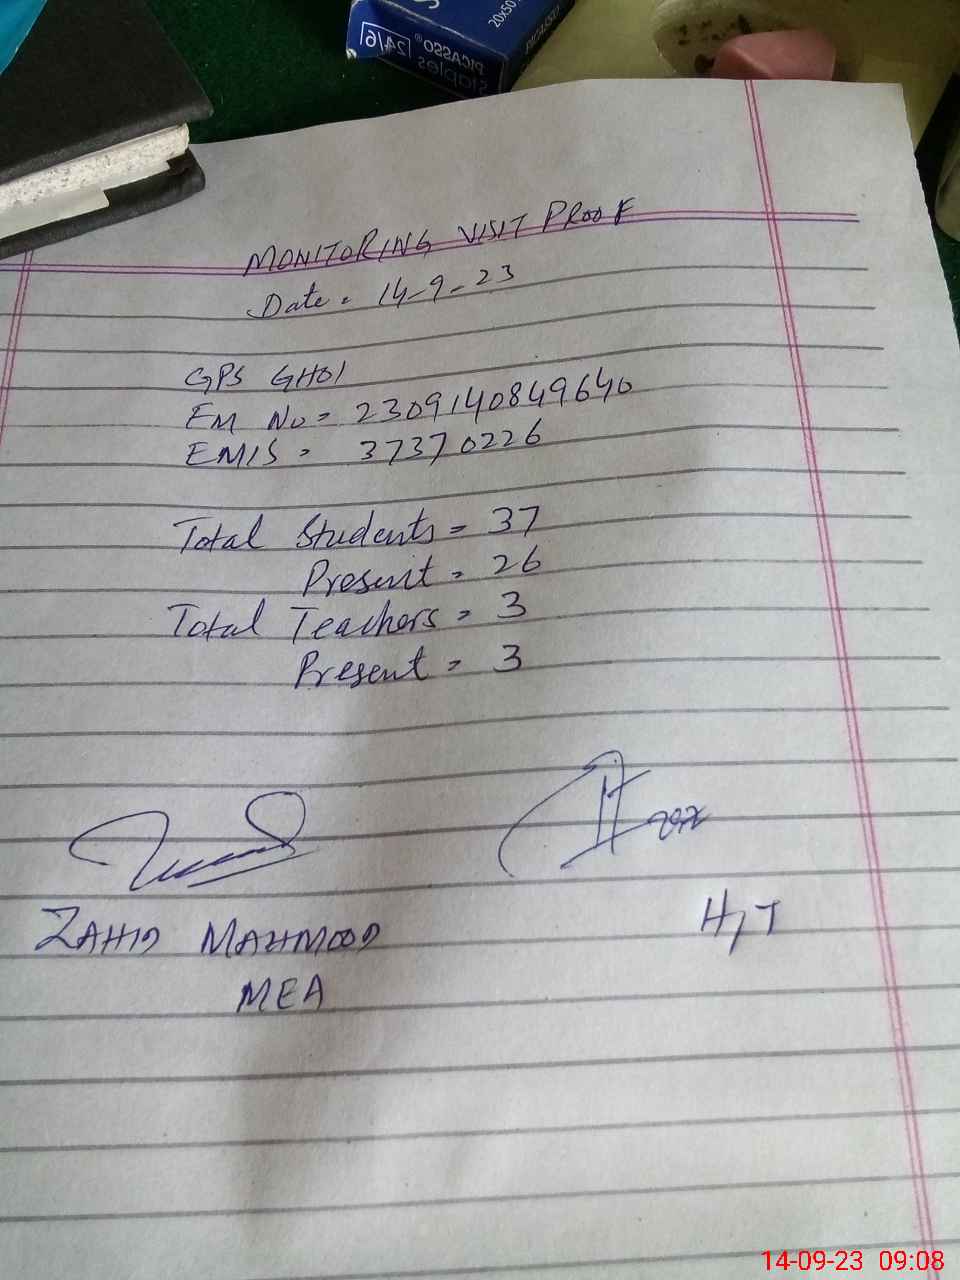 PICASSO®
staples
24/6
20x50
PICASSO
MONITORING VISIT PROOF
Date = 14-9-23
GPS GHOI
EM No = 2309140849640
EMIS = 37370226
Total Students = 37
Present = 26
Total Teachers = 3
Present = 3
ZAHID MAHMOOD
MEA
H/T
14-09-23 09:08